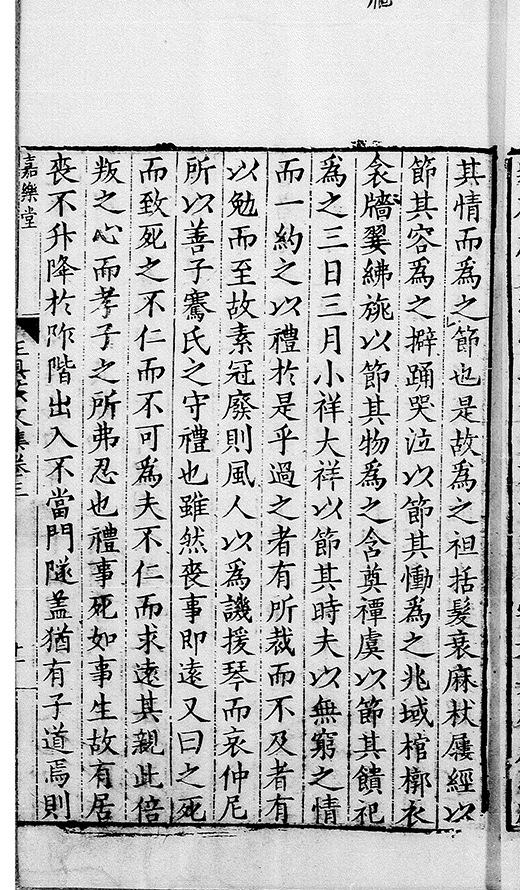 其情而為之節也是故為之袒括髮衰麻杖屨絰以
節其容為之擗踊哭泣以節其慟為之兆域棺槨衣
衾牆翣紼旐以節其物為之含奠禫虞以節其饋祀
為之三日三月小祥大祥以節其時夫以無窮之情
而一約之以禮於是乎過之者有所裁而不及者有
以勉而至故素冠廢則風人以為譏援琴而哀仲尼
所以善子騫氏之守禮也雖然喪事即遠又曰之死
而致死之不仁而不可為夫不仁而求遠其親此倍
叛之心而孝子之所弗忍也禮事死如事生故有居
喪不升降於阼階出入不當門隧蓋猶有子道焉則
嘉樂堂
文集卷三
十一